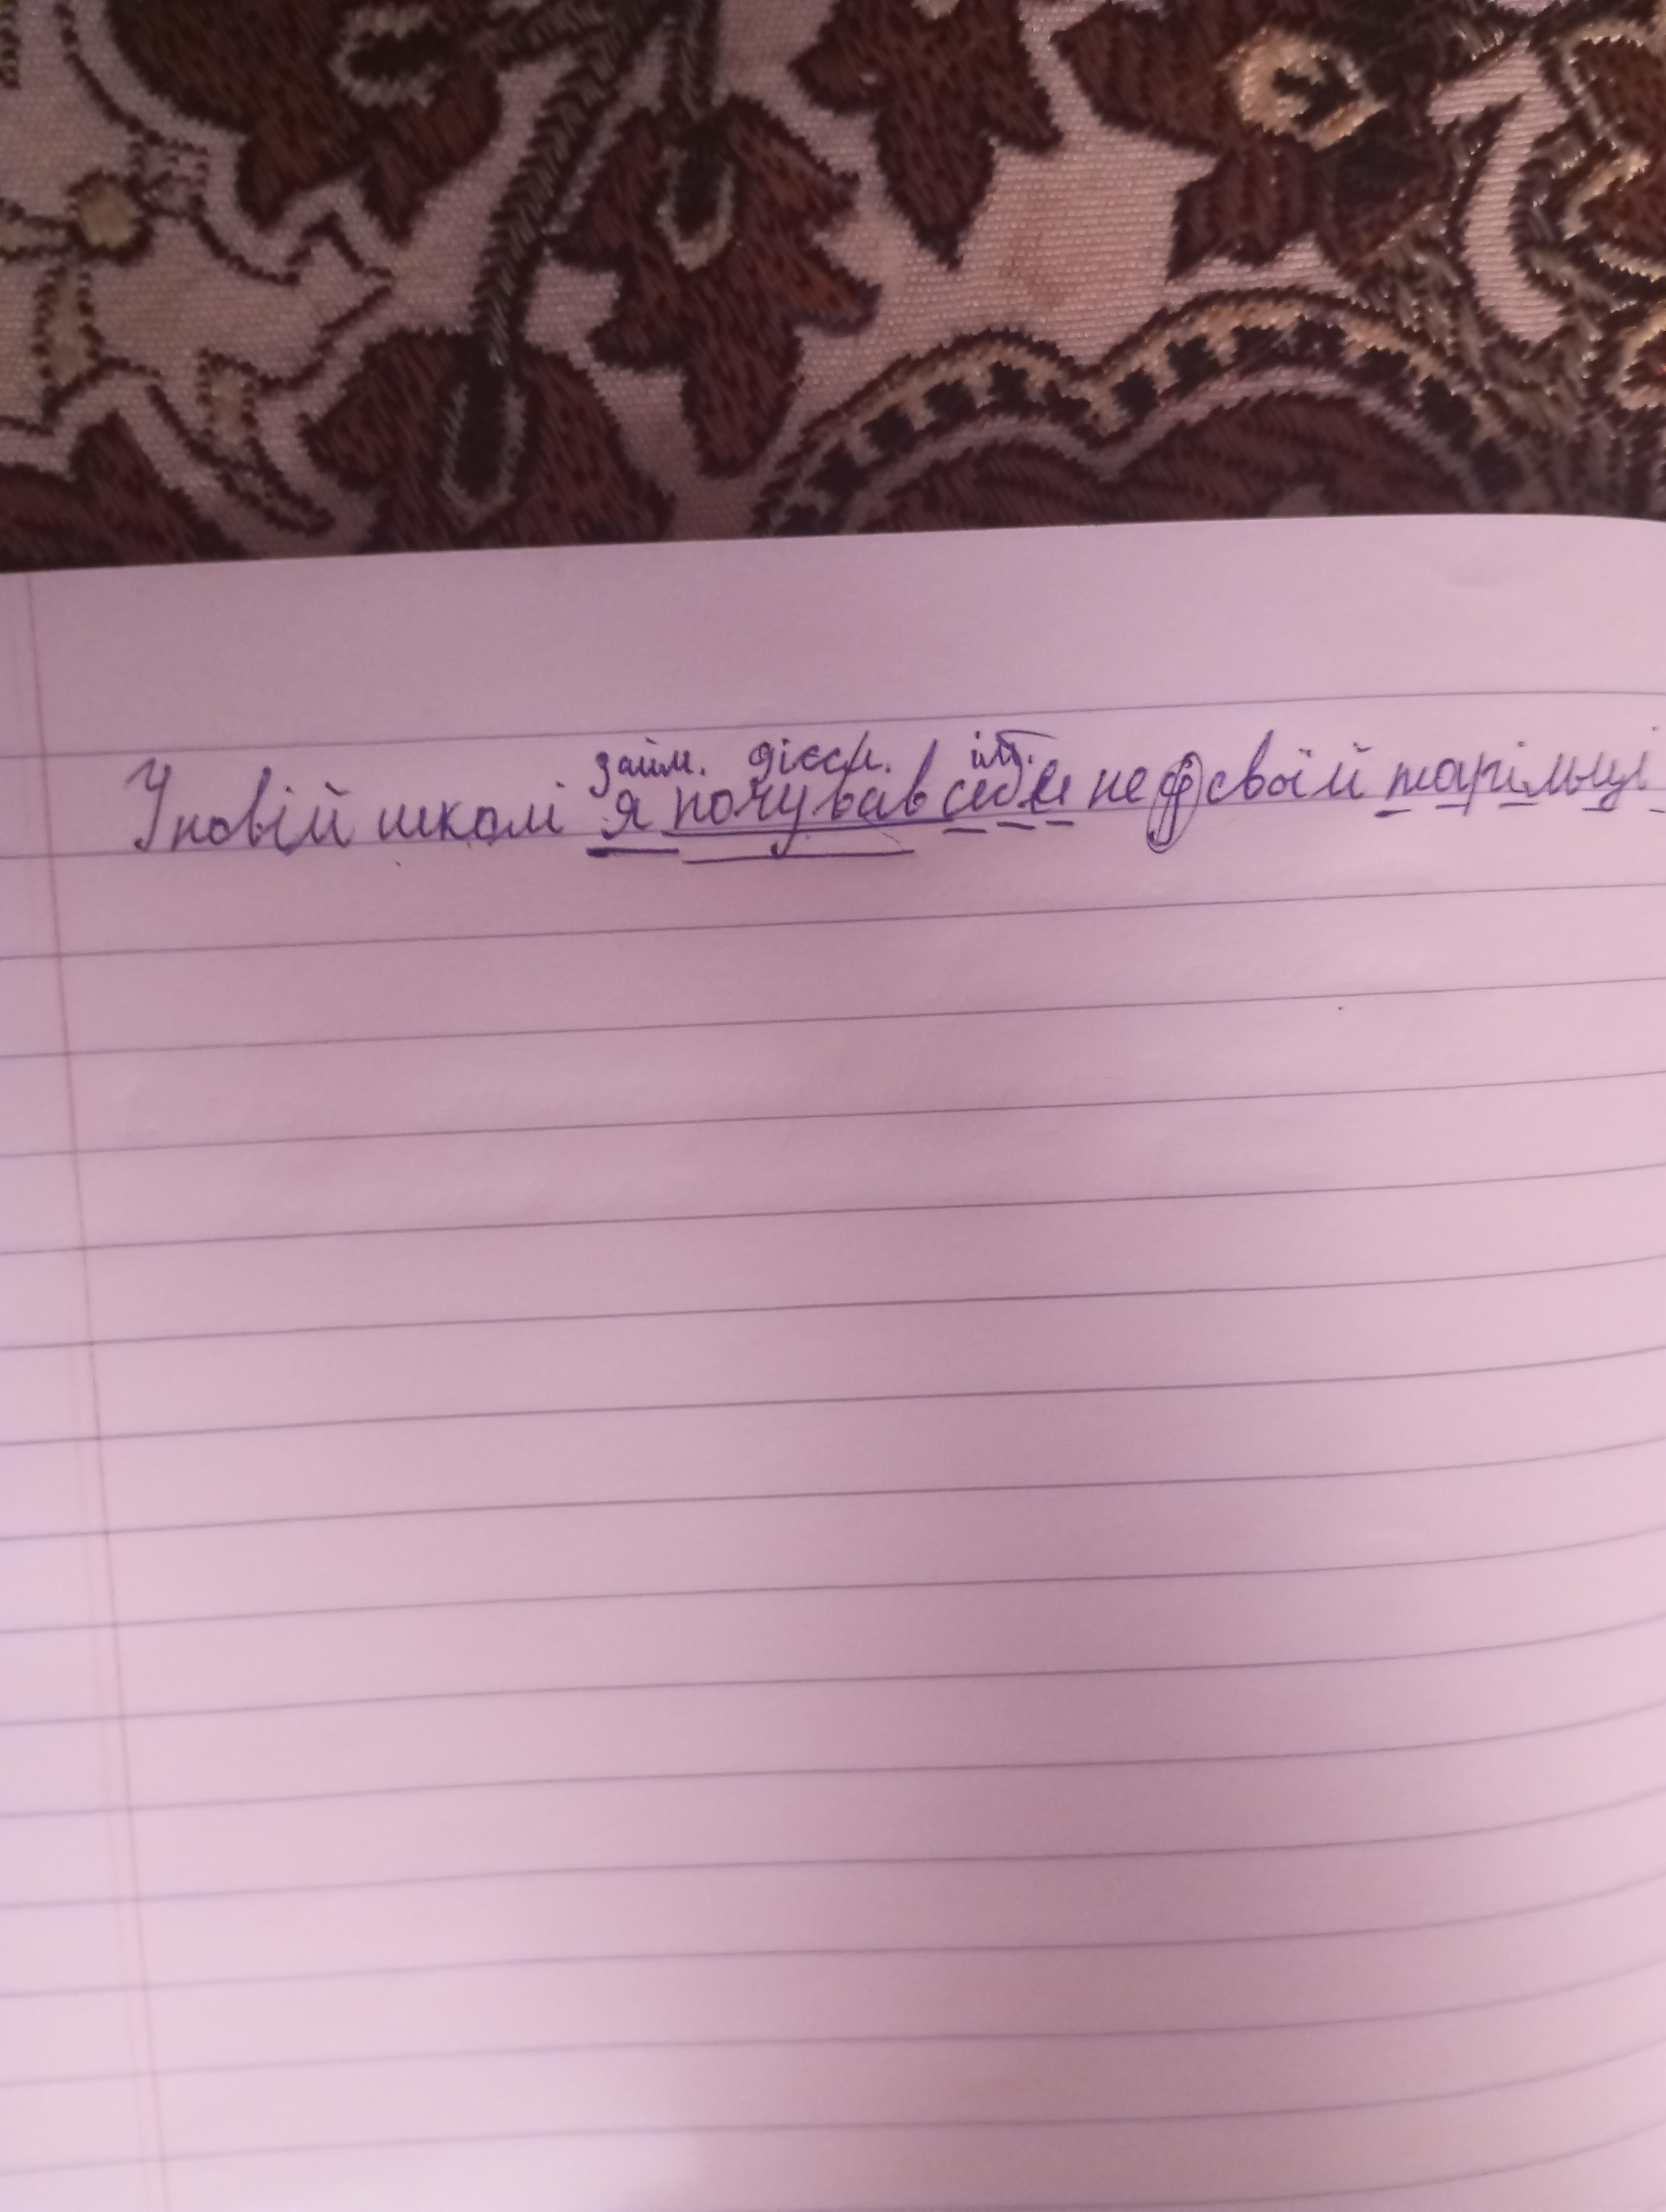 займ. дієсл. ім.
У новій школі я почував себе не в своїй тарільці